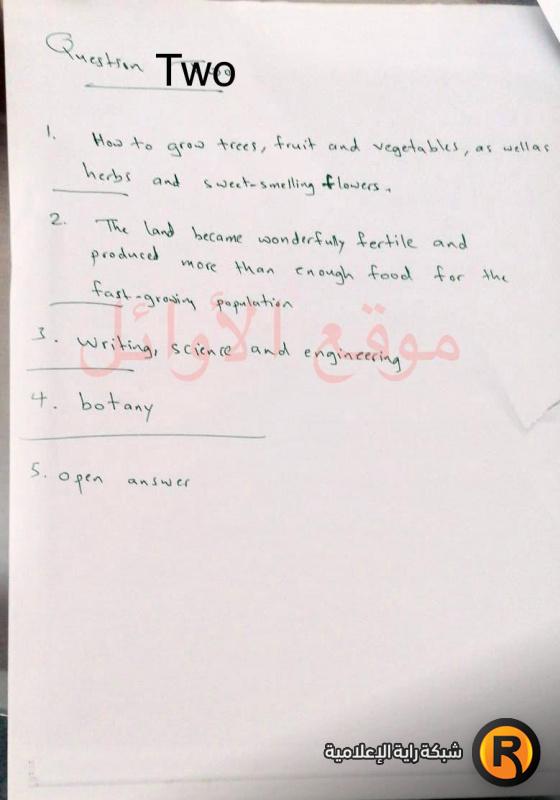 Question Two
1. How to grow trees, fruit and vegetables, as well as
herbs and sweet-smelling flowers.
2. The land became wonderfully fertile and
produced more than enough food for the
fast-growing population
3. writing, science and engineering
موقع الأوائل
4. botany
5. open answer
شبكة راية الإعلامية
R